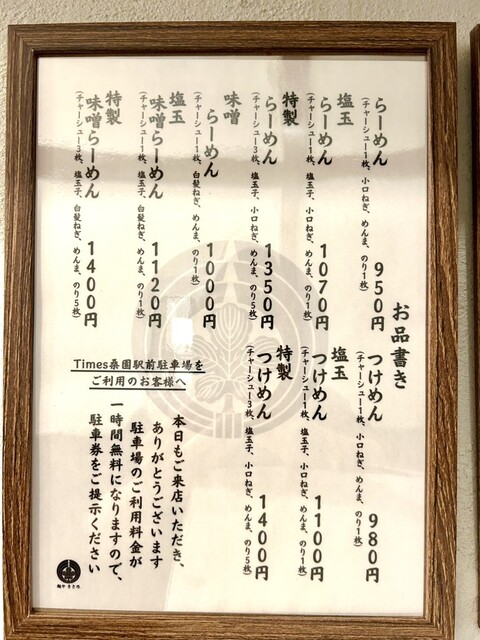 お品書き
らーめん 950円
(チャーシュー1枚、小口ねぎ、めんま、のり1枚)
塩玉
らーめん 1070円
(チャーシュー1枚、塩玉子、小口ねぎ、めんま、のり1枚)
特製
らーめん 1350円
(チャーシュー3枚、塩玉子、小口ねぎ、めんま、のり5枚)
味噌
らーめん 1000円
(チャーシュー1枚、白髪ねぎ、めんま、のり1枚)
塩玉
味噌らーめん 1120円
(チャーシュー1枚、塩玉子、白髪ねぎ、めんま、のり1枚)
特製
味噌らーめん 1400円
(チャーシュー3枚、塩玉子、白髪ねぎ、めんま、のり5枚)
つけめん 980円
(チャーシュー1枚、小口ねぎ、めんま、のり1枚)
塩玉
つけめん 1100円
(チャーシュー1枚、塩玉子、小口ねぎ、めんま、のり1枚)
特製
つけめん 1400円
(チャーシュー3枚、塩玉子、小口ねぎ、めんま、のり5枚)
Times桑園駅前駐車場を
ご利用のお客様へ
本日もご来店いただき、
ありがとうございます
駐車場のご利用料金が
一時間無料になりますので、
駐車券をご提示ください